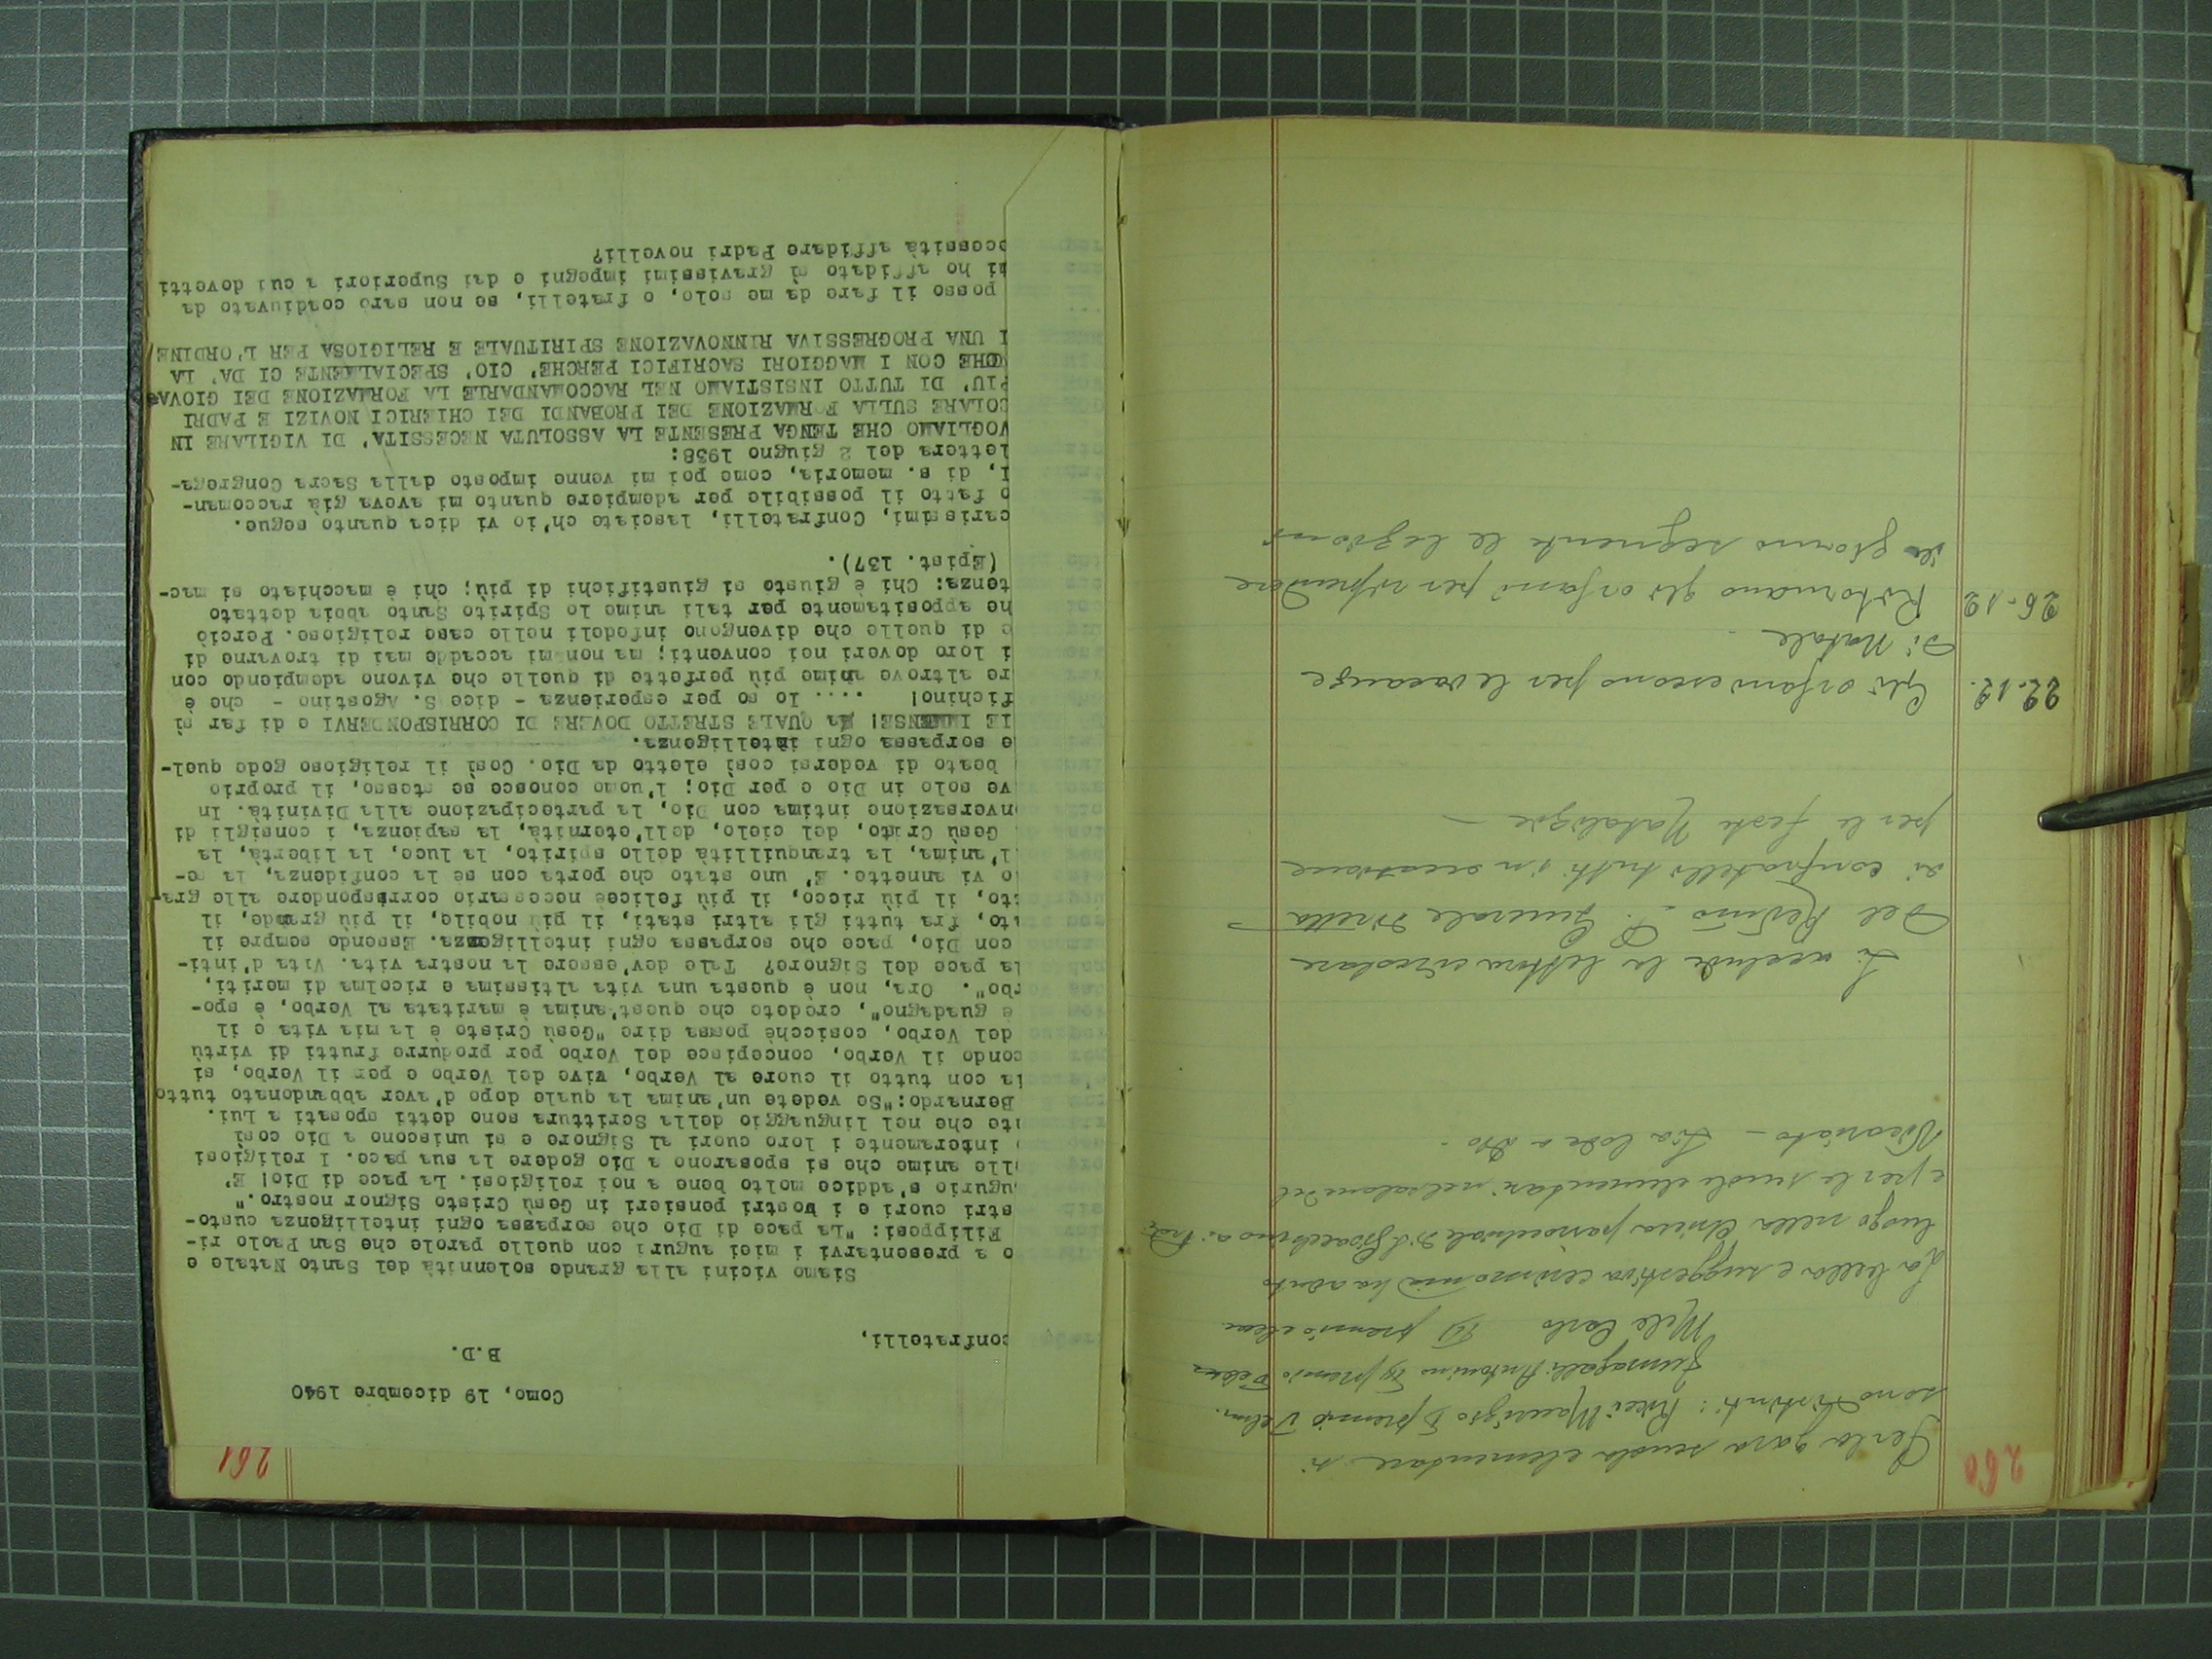 260
Per la gara scuola elementare si
sono distinti: Ricci Maurizio I premio Velm.
Fumagalli Antonino II premio
Melé Carlo III premio
La bella e suggestiva cerimonia ha avuto
luogo nella Chiesa parrocchiale di S. Gioacchino a.
e per le scuole elementari nel salone del
Vicariato – Sia lode a Dio.
Si acclude la lettera circolare
del Rev.mo P. Generale diretta
ai confratelli tutti in occasione
per le feste Natalizie –
22.12. Gli orfani escono per le vacanze
di Natale
26.12 Ritornano gli orfani per riprendere
il giorno seguente le lezioni
261
Como, 19 dicembre 1940
B.D.
onfratelli,
Siamo vicini alla grande solennità del Santo Natale e
o a presentarvi i miei auguri con quelle parole che San Paolo ri-
Filippesi: "La pace di Dio che sorpassa ogni intelligenza custo-
stri cuori e i vostri pensieri in Gesù Cristo Signor nostro."
ugurio s'addice molto bene a noi religiosi. La pace di Dio! E'
lle anime che si sposarono a Dio godere la sua pace. I religiosi
o interamente i loro cuori al Signore e si uniscono a Dio così
nte che nel linguaggio della Scrittura sono detti sposati a Lui.
Bernardo:"Se vedete un'anima la quale dopo d'aver abbandonato tutto
la con tutto il cuore al Verbo, vive del Verbo e per il Verbo, si
condo il Verbo, concepisce del Verbo per produrre frutti di virtù
del Verbo, cosicchè possa dire "Gesù Cristo è la mia vita e il
è guadagno", credete che quest'anima è maritata al Verbo, è spo-
rbo". Ora, non è questa una vita altissima e ricolma di meriti,
la pace del Signore? Tale dev'essere la nostra vita. Vita d'inti-
con Dio, pace che sorpassa ogni intelligenza. Essendo sempre il
ato, fra tutti gli altri stati, il più nobile, il più grande, il
tto, il più ricco, il più felice necessario corrispondere alle gra
o vi annetto. E' uno stato che porta con sè la confidenza, la ge-
l'anima, la tranquillità dello spirito, la luce, la libertà, la
Gesù Cristo, del cielo, dell'eternità, la sapienza, i consigli di
nversazione intima con Dio, la partecipazione alla Divinità. In
ve solo in Dio e per Dio; l'uomo conosce se stesso, il proprio
beato di vedersi così eletto da Dio. Così il religioso gode quel-
e sorpassa ogni intelligenza.
IE IMMENSE! Ma QUALE STRETTO DOVERE DI CORRISPONDERVI e di far sì
fichino! .... Io so per esperienza - dice S. Agostino - che è
re altrove anime più perfette di quelle che vivono adempiendo con
i loro doveri nei conventi; ma non mi accadde mai di trovarne di
e di quelle che divengono infedeli nelle case religiose. Perciò
he appositamente per tali anime lo Spirito Santo abbia dettato
tenza: Chi è giusto si giustifichi di più; chi è macchiato si mac-
(Epist. 137).
carissimi, Confratelli, lasciate ch'io vi dica quanto segue.
o fatto il possibile per adempiere quanto mi aveva già raccoman-
I, di s. memoria, come poi mi venne imposto dalla Sacra Congrega-
lettera del 2 giugno 1938:
VOGLIAMO CHE TENGA PRESENTE LA ASSOLUTA NECESSITA' DI VIGILARE IN
COLARE SULLA FORMAZIONE DEI PROBANDI DEI CHIERICI NOVIZI E PADRI
PIU' DI TUTTO INSISTIAMO NEL RACCOMANDARLE LA FORMAZIONE DEI GIOVA
CHE CON I MAGGIORI SACRIFICI PERCHE' CIO' SPECIALMENTE CI DA' LA
I UNA PROGRESSIVA RINNOVAZIONE SPIRITUALE E RELIGIOSA PER L'ORDINE
posso il fare da me solo, o fratelli, se non sarò coadiuvato da
ti ho affidato sì gravissimi impegni e dai Superiori a cui dovetti
ecessità affidare Padri novelli?